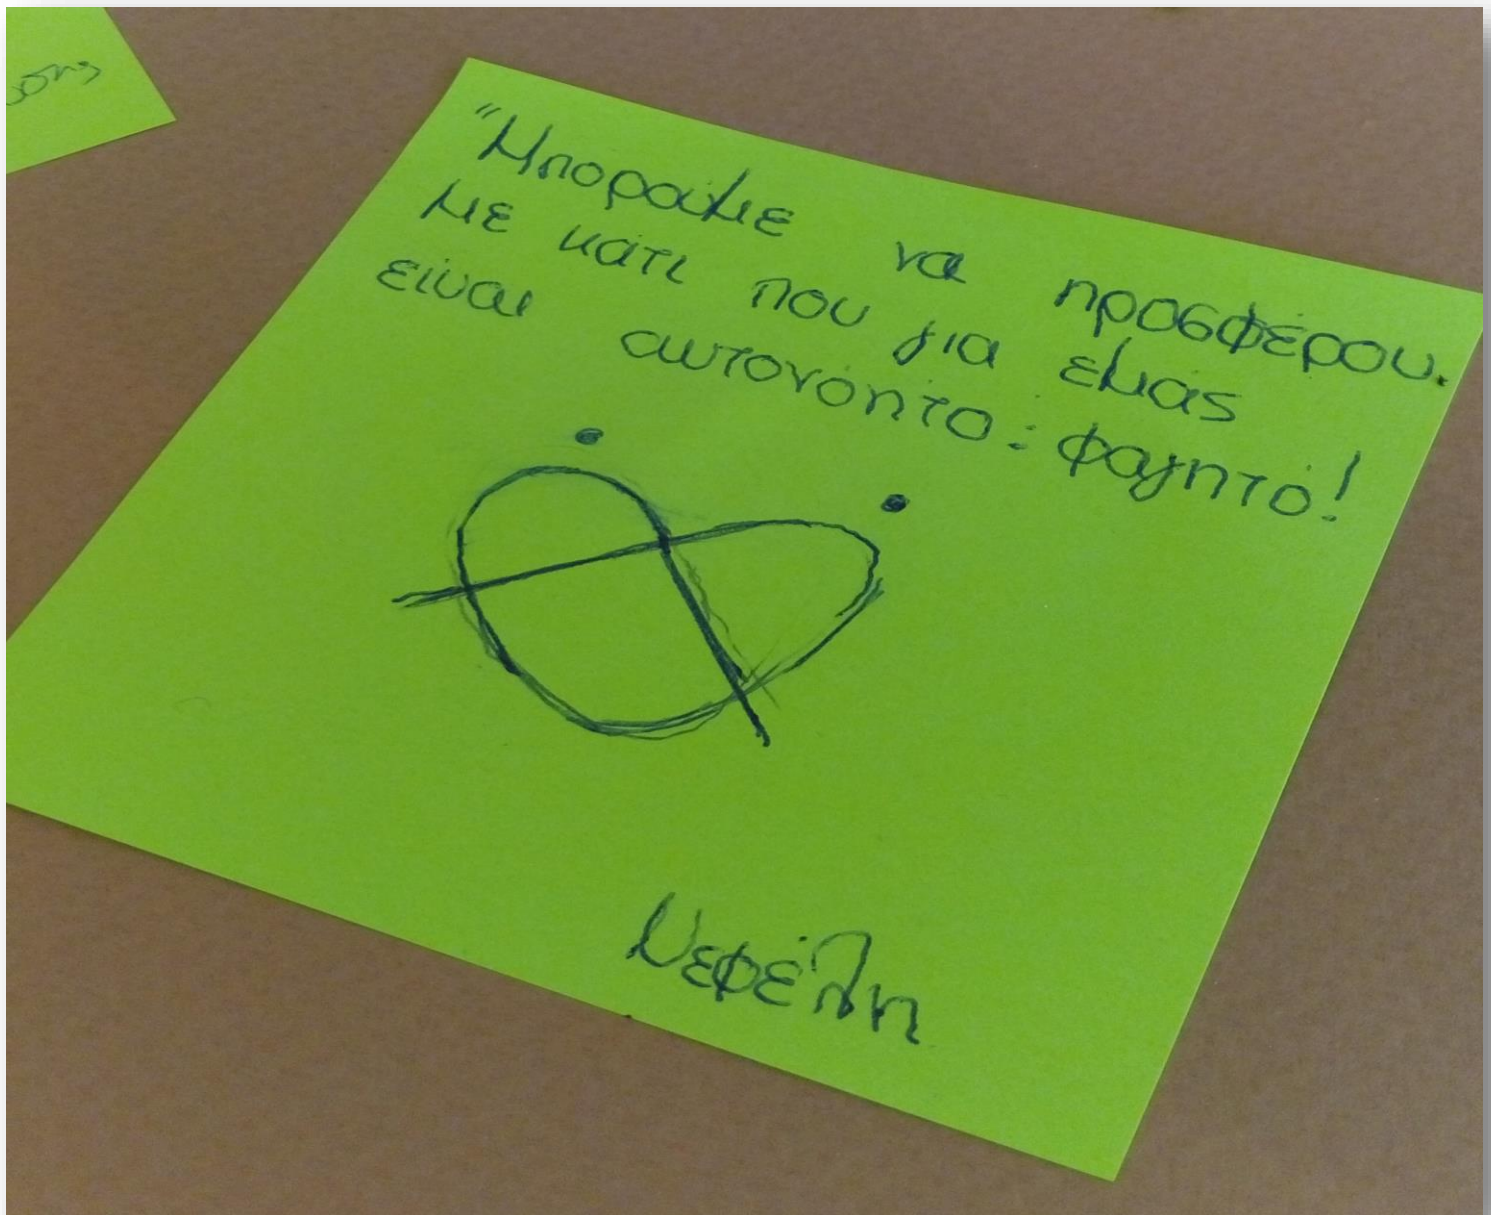 "Μπορούμε να προσφέρου.
με κάτι που για εμάς
είναι αυτονόητο: φαγητό!
Νεφέλη